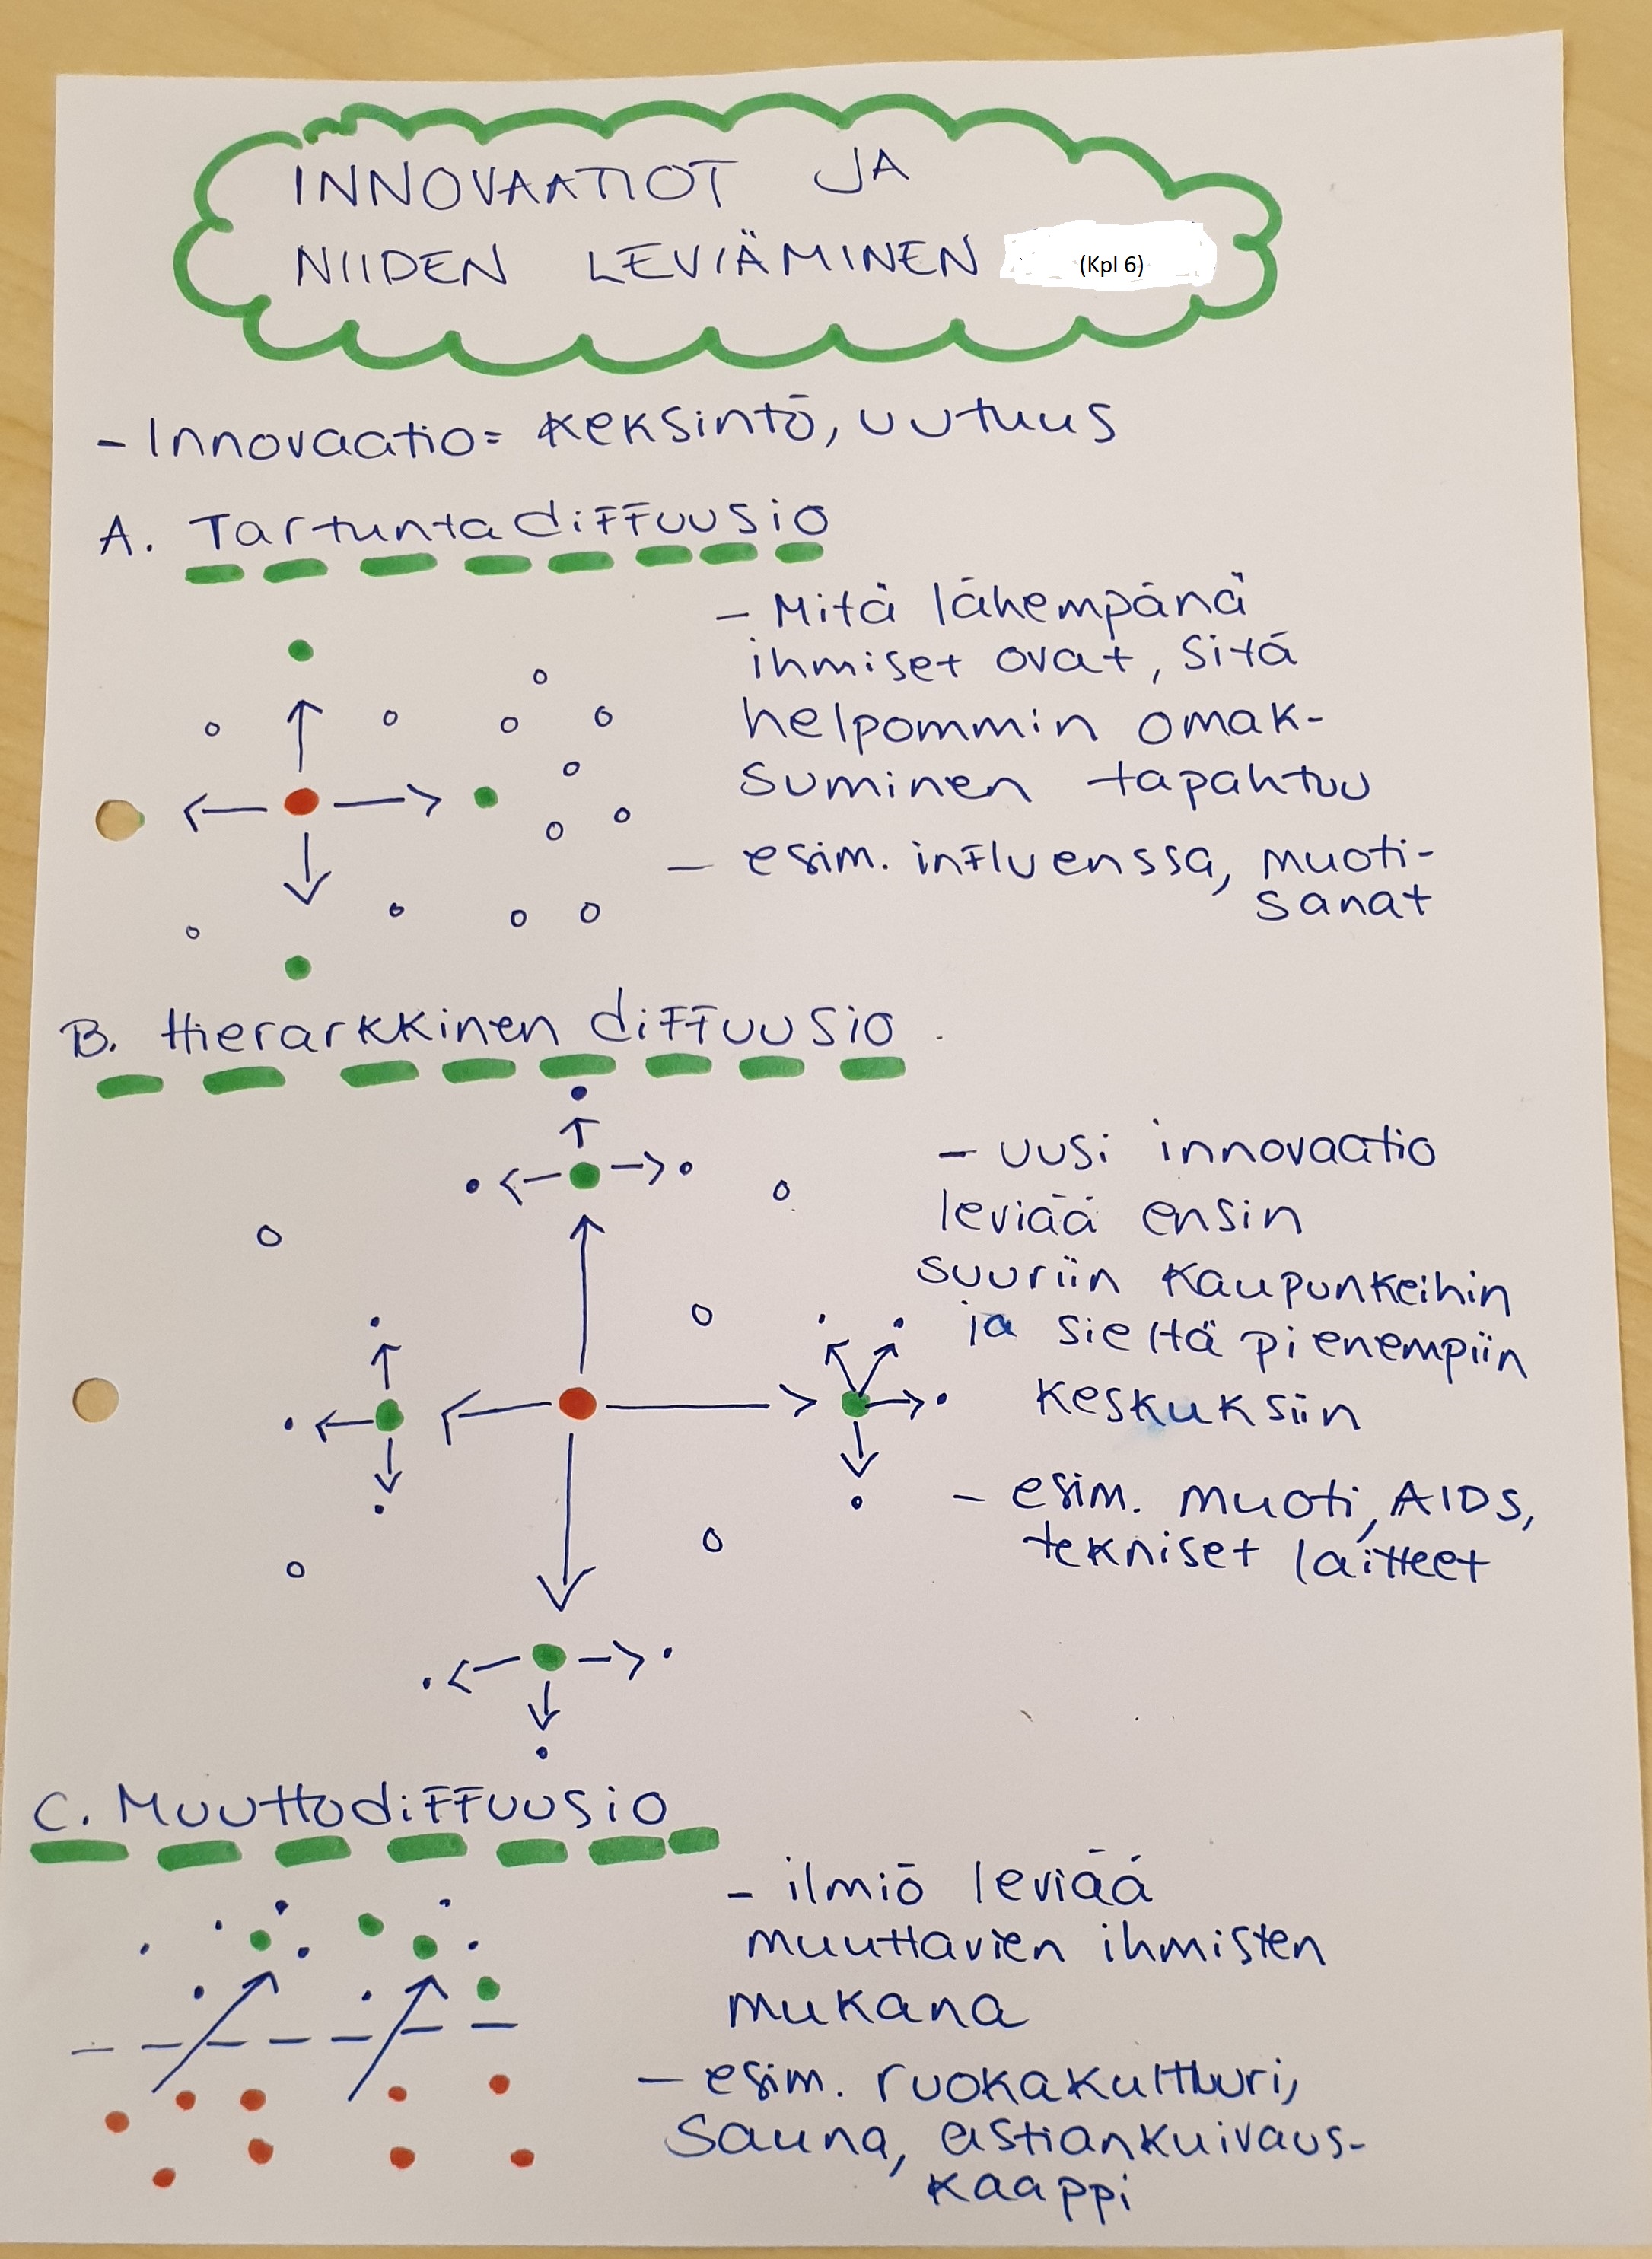 INNOVAATIOT JA
NIIDEN LEVIÄMINEN (Kpl 6)
- Innovaatio= keksintö, uutuus
A. Tartuntadiffuusio
- Mitä lähempänä
ihmiset ovat, sitä
helpommin omak-
suminen tapahtuu
- esim. influenssa, muoti-
sanat
B. Hierarkkinen diffuusio
- uusi innovaatio
leviää ensin
suuriin kaupunkeihin
ja sieltä pienempiin
keskuksiin
- esim. muoti, AIDS,
tekniset laitteet
C. Muuttodiffuusio
- ilmiö leviää
muuttavien ihmisten
mukana
- esim. ruokakulttuuri,
sauna, astiankuivaus-
kaappi